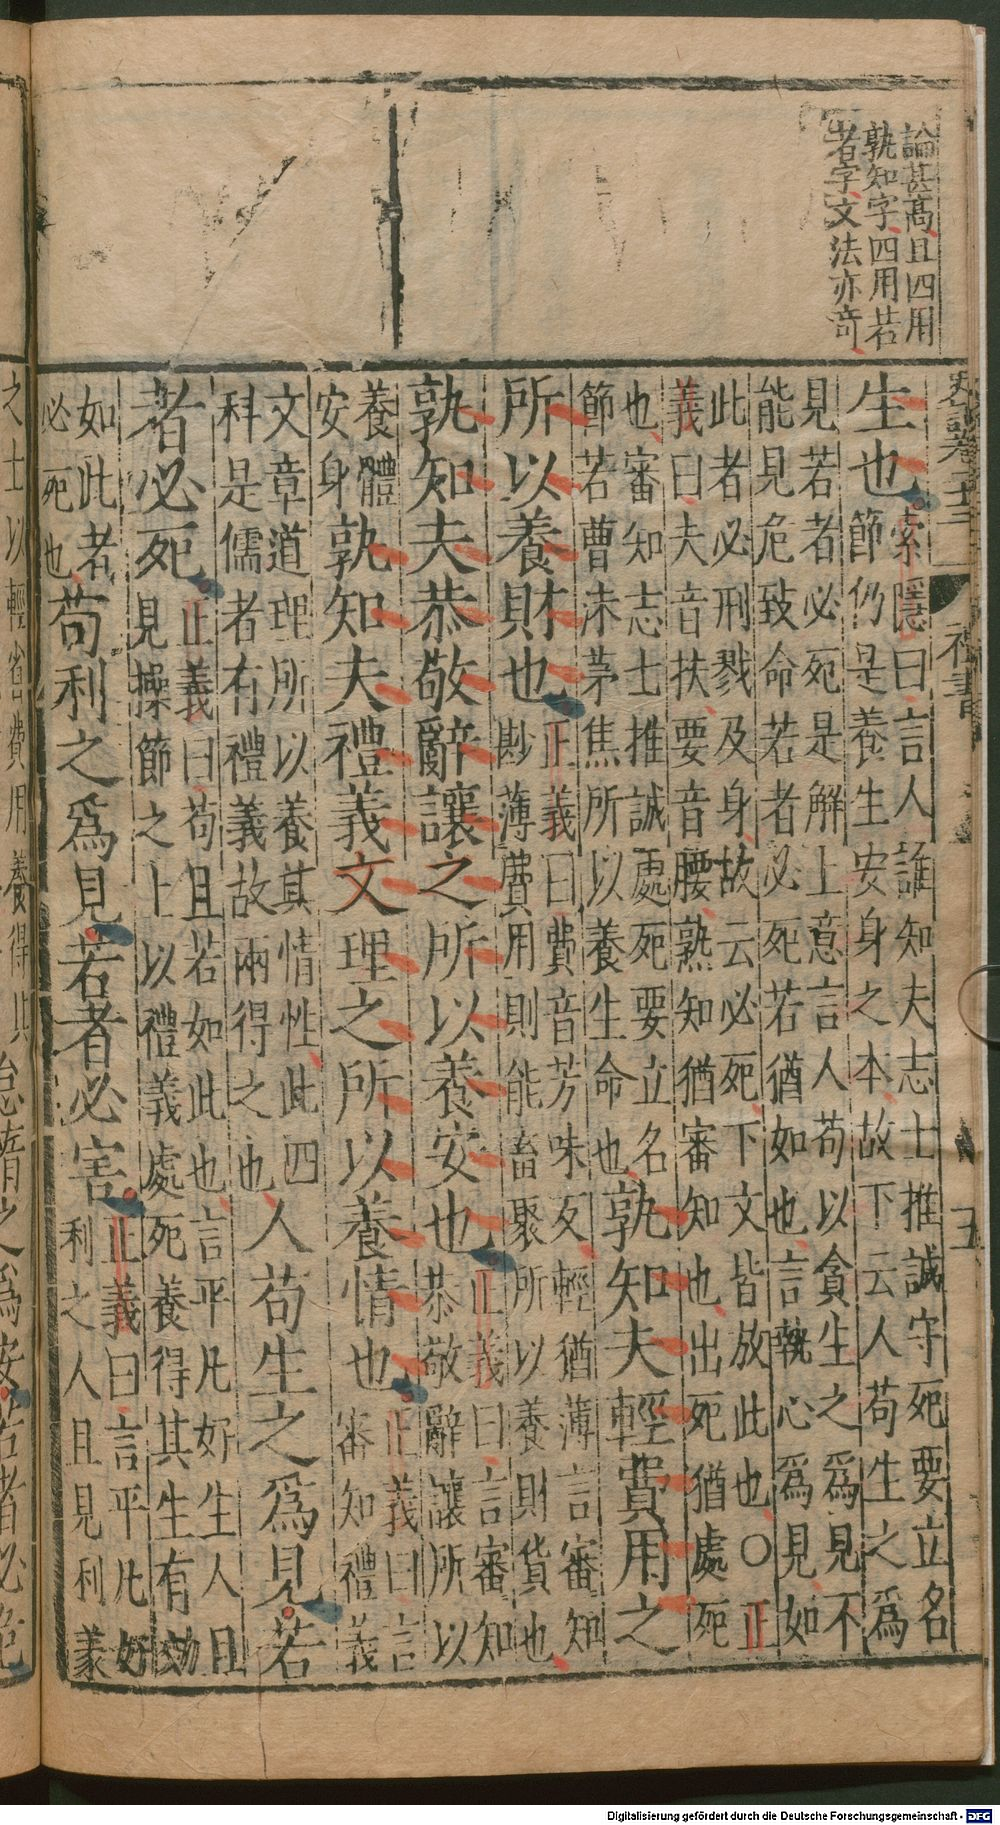 論甚高且四用
孰知字四用若
者字文法亦奇
史記卷二十三 禮書 五
生也
索隱曰言人誰知夫志士推誠守死要立名
節仍是養生安身之本故下云人苟生之爲
見若者必死是解上意言人苟以貪生之爲見不
能見危致命若者必死若猶如也言執心爲見如
此者必刑戮及身故云必死下文皆放此也○正
義曰夫音扶要音腰熟知猶審知也出死猶處死
也審知志士推誠處死要立名
節若曹沫茅焦所以養生命也
孰知夫輕費用之
所以養財也
正義曰費音芳味反輕猶薄言審知
尠薄費用則能畜聚所以養財貨也
孰知夫恭敬辭讓之所以養安也
正義曰言審知
恭敬辭讓所以
養體
安身
孰知夫禮義文理之所以養情也
正義曰言
審知禮義
文章道理所以養其情性此四
科是儒者有禮義故兩得之也
人苟生之爲見若
者必死
正義曰苟且若如此也言平凡好生人且
見操節之士以禮義處死養得其生有効
如此者
必死也
苟利之爲見若者必害
正義曰言平凡好
利之人且見利義
之士以輕省費用養得其
怠惰之爲安若者必危
Digitalisierung gefördert durch die Deutsche Forschungsgemeinschaft - DFG